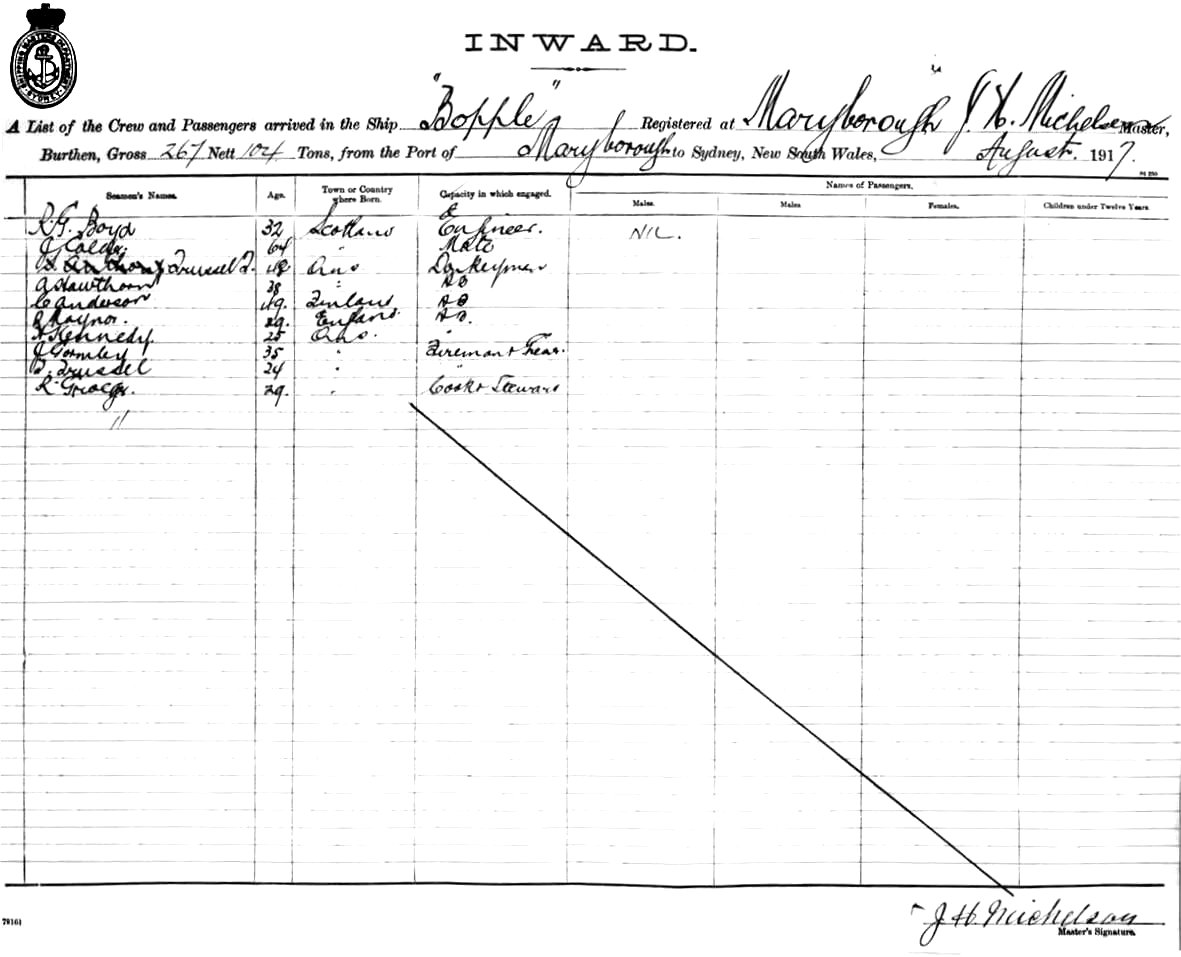 SHIPPING MASTERS DEPARTMENT SYDNEY
INWARD.
A List of the Crew and Passengers arrived in the Ship "Bopple" Registered at Maryborough J. H. Michelson Master,
Burthen, Gross 267 Nett 104 Tons, from the Port of Maryborough to Sydney, New South Wales, August. 1917.
Seamen's Names. Age. Town or Country where Born. Capacity in which engaged. Names of Passengers.
Males. Males Females. Children under Twelve Years
R. G. Boyd 32 Scotland Engineer. NIL.
J. 64 " Mate
Trussel 48 Aus Donkeyman
A Hawthorn 38 " AB
C Anderson 49. Finland AB
Raynor. 29. England AB.
Kennedy. 25 Aus. "
J Gormley 35 " Fireman &
Trussel 24 "
R. 29. " Cook & Steward
79161
J H. Michelson
Master's Signature.